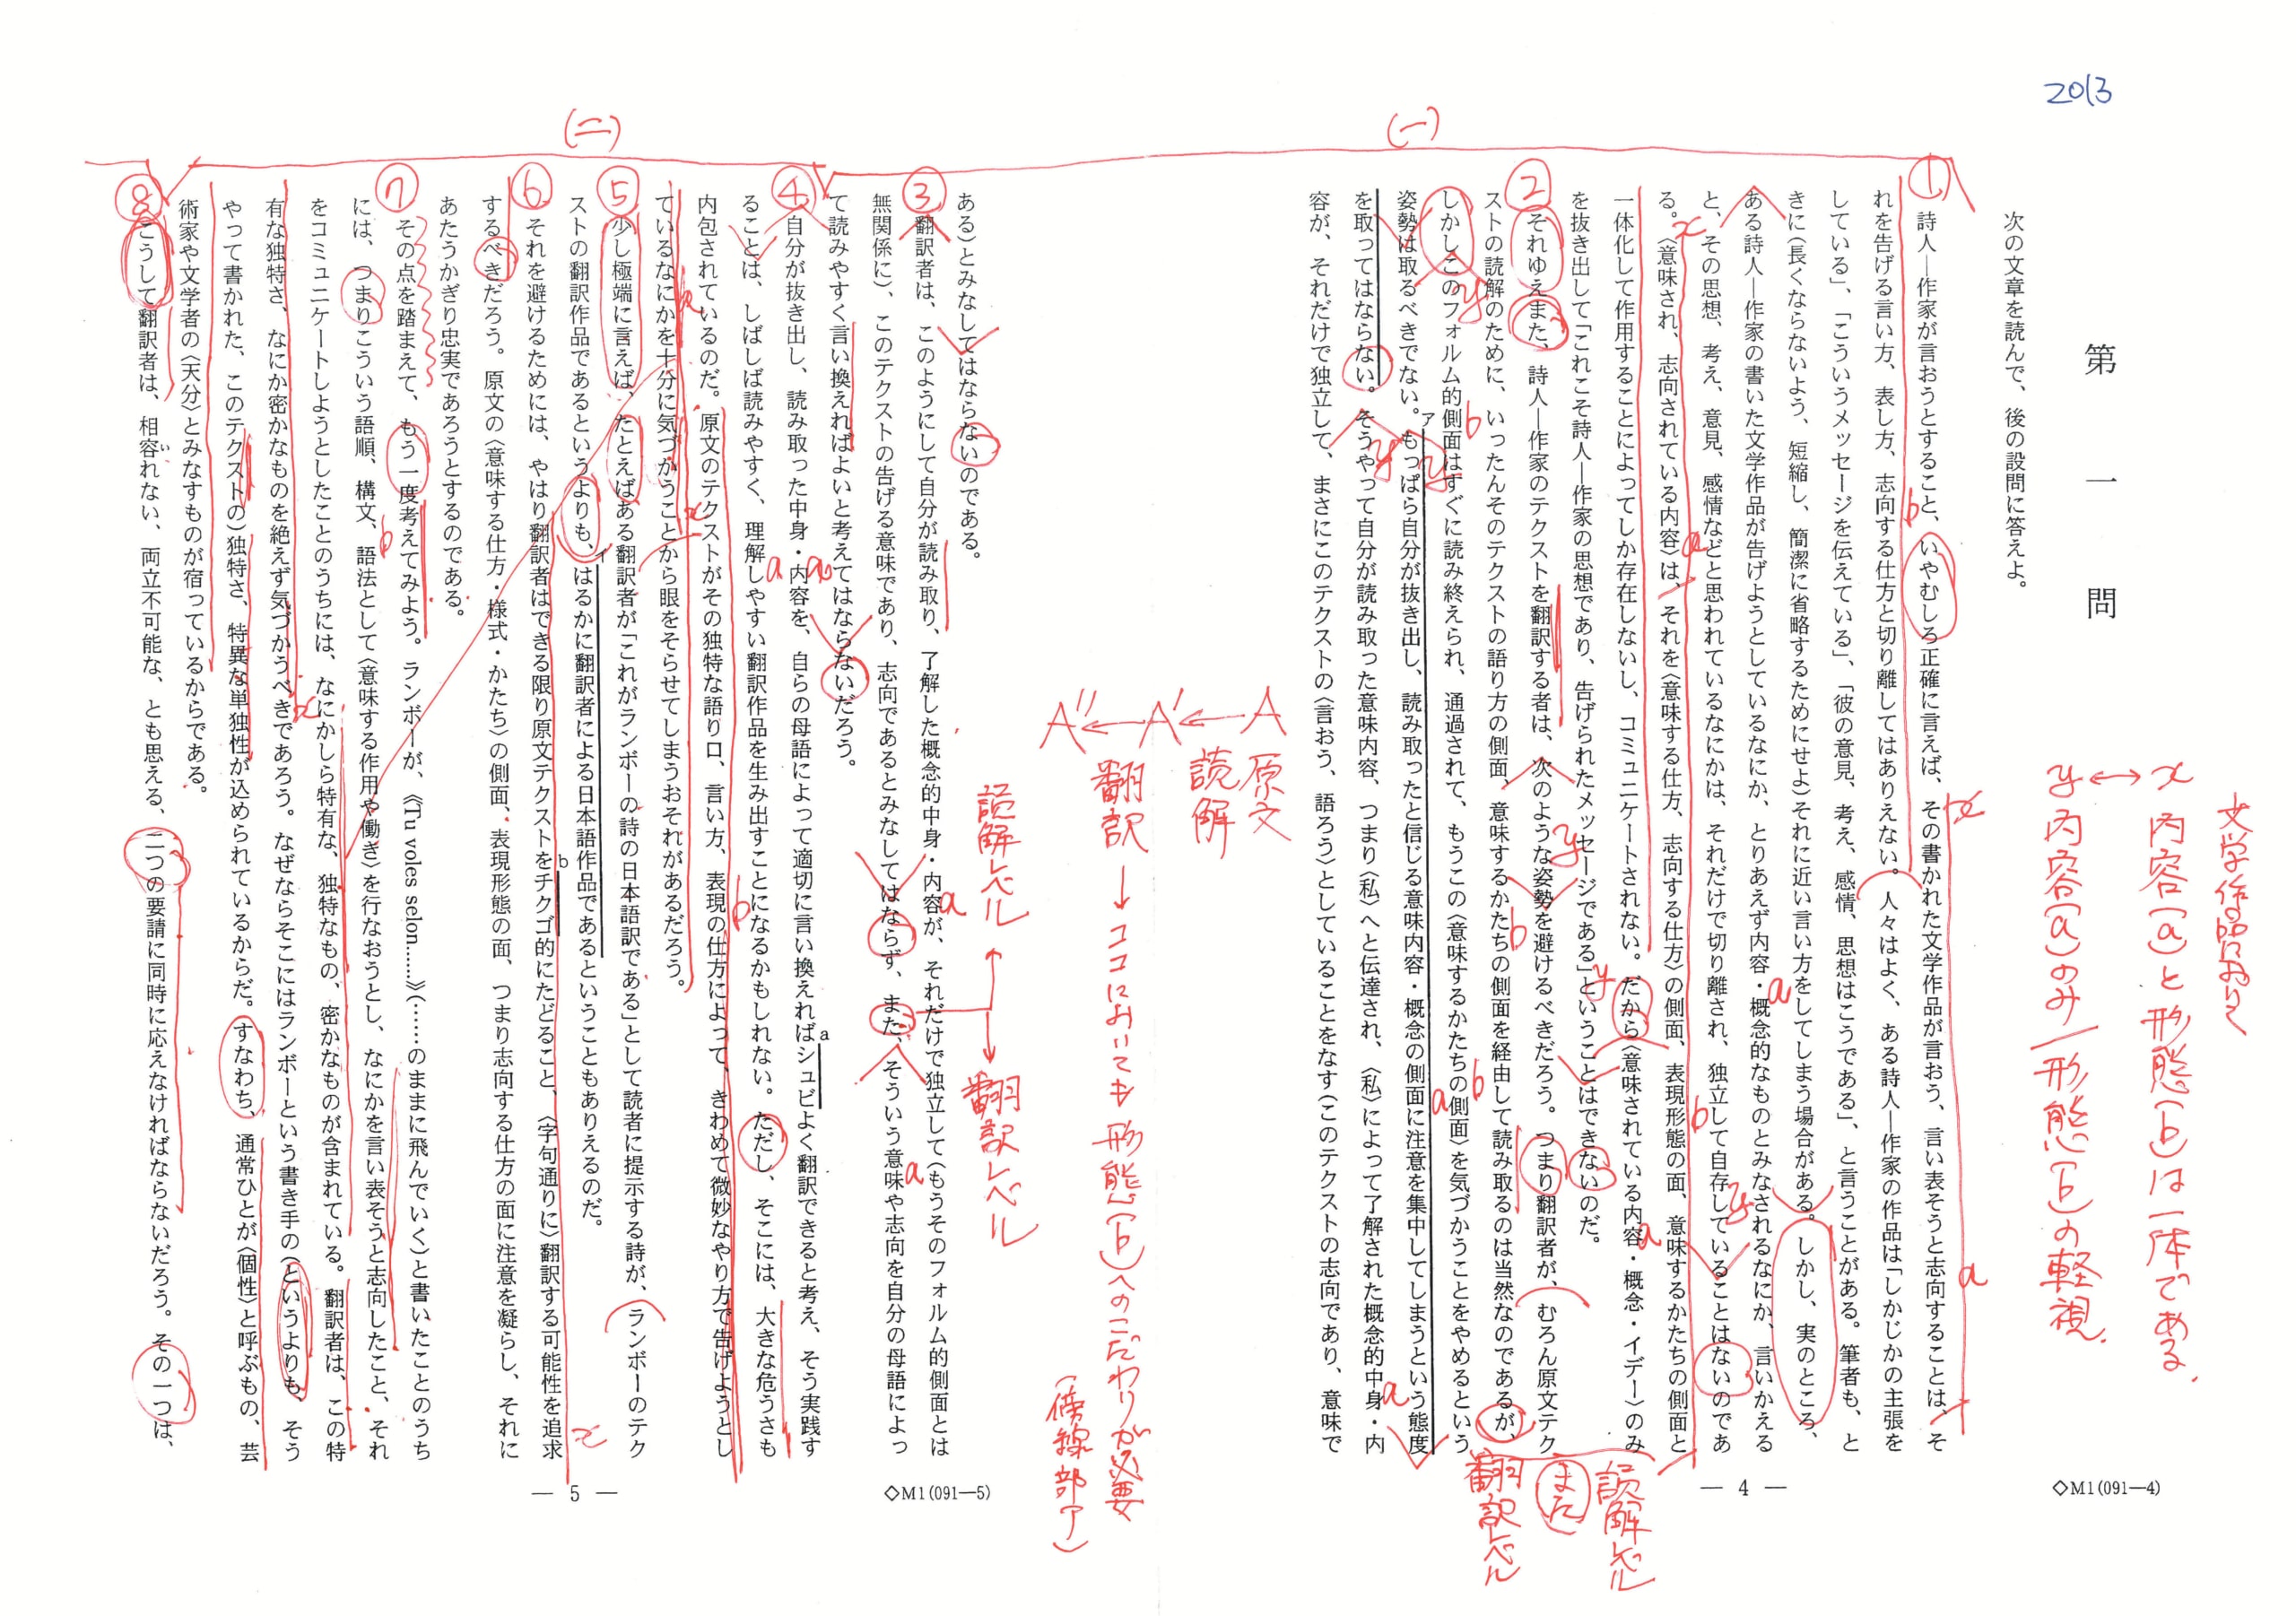 2013
第一問
次の文章を読んで、後の設問に答えよ。
文学作品において
x 内容(a)と形態(b)は一体である。
y 内容(a)のみ/形態(b)の軽視。
(一)
①
詩人―作家が言おうとすること、いやむしろ正確に言えば、その書かれた文学作品が言おう、言い表そうと志向することは、そ
れを告げる言い方、表し方、志向する仕方と切り離してはありえない。人々はよく、ある詩人―作家の作品は「しかじかの主張を
している」、「こういうメッセージを伝えている」、「彼の意見、考え、感情、思想はこうである」、と言うことがある。筆者も、と
きに(長くならないよう、短縮し、簡潔に省略するためにせよ)それに近い言い方をしてしまう場合がある。しかし、実のところ、
ある詩人―作家の書いた文学作品が告げようとしているなにか、とりあえず内容・概念的なものとみなされるなにか、言いかえる
と、その思想、考え、意見、感情などと思われているなにかは、それだけで切り離され、独立して自存していることはないのであ
る。〈意味され、志向されている内容〉は、それを〈意味する仕方、志向する仕方〉の側面、表現形態の面、意味するかたちの側面と
一体化して作用することによってしか存在しないし、コミュニケートされない。だから〈意味されている内容・概念・イデー〉のみ
を抜き出して「これこそ詩人―作家の思想であり、告げられたメッセージである」ということはできないのだ。
②
それゆえまた、詩人―作家のテクストを翻訳する者は、次のような姿勢を避けるべきだろう。つまり翻訳者が、むろん原文テク
ストの読解のために、いったんそのテクストの語り方の側面、意味するかたちの側面を経由して読み取るのは当然なのであるが、
しかしこのフォルム的側面はすぐに読み終えられ、通過されて、もうこの〈意味するかたちの側面〉を気づかうことをやめるという
姿勢は取るべきでない。もっぱら自分が抜き出し、読み取ったと信じる意味内容・概念の側面に注意を集中してしまうという態度
ア
を取ってはならない。そうやって自分が読み取った意味内容、つまり〈私〉へと伝達され、〈私〉によって了解された概念的中身・内
容が、それだけで独立して、まさにこのテクストの〈言おう、語ろう〉としていることをなす(このテクストの志向であり、意味で
読解レベル
また
翻訳レベル
— 4 —
◇M1(091—4)
A←A'←A''
原文
読解
翻訳→ココにおいても形態(b)へのこだわりが必要
(傍線部ア)
読解レベル
翻訳レベル
ある)とみなしてはならないのである。
③
翻訳者は、このようにして自分が読み取り、了解した概念的中身・内容が、それだけで独立して(もうそのフォルム的側面とは
無関係に)、このテクストの告げる意味であり、志向であるとみなしてはならず、また、そういう意味や志向を自分の母語によっ
て読みやすく言い換えればよいと考えてはならないだろう。
(二)
④
自分が抜き出し、読み取った中身・内容を、自らの母語によって適切に言い換えればシュビよく翻訳できると考え、そう実践す
a
ることは、しばしば読みやすく、理解しやすい翻訳作品を生み出すことになるかもしれない。ただし、そこには、大きな危うさも
内包されているのだ。原文のテクストがその独特な語り口、言い方、表現の仕方によって、きわめて微妙なやり方で告げようとし
ているなにかを十分に気づかうことから眼をそらせてしまうおそれがあるだろう。
⑤
少し極端に言えば、たとえばある翻訳者が「これがランボーの詩の日本語訳である」として読者に提示する詩が、ランボーのテク
ストの翻訳作品であるというよりも、はるかに翻訳者による日本語作品であるということもありえるのだ。
イ
⑥
それを避けるためには、やはり翻訳者はできる限り原文テクストをチクゴ的にたどること、〈字句通りに〉翻訳する可能性を追求
b
するべきだろう。原文の〈意味する仕方・様式・かたち〉の側面、表現形態の面、つまり志向する仕方の面に注意を凝らし、それに
あたうかぎり忠実であろうとするのである。
⑦
その点を踏まえて、もう一度考えてみよう。ランボーが、《Tu voles selon……》(……のままに飛んでいく)と書いたことのうち
には、つまりこういう語順、構文、語法として〈意味する作用や働き〉を行なおうとし、なにかを言い表そうと志向したこと、それ
をコミュニケートしようとしたことのうちには、なにかしら特有な、独特なもの、密かなものが含まれている。翻訳者は、この特
有な独特さ、なにか密かなものを絶えず気づかうべきであろう。なぜならそこにはランボーという書き手の(というよりも、そう
やって書かれた、このテクストの)独特さ、特異な単独性が込められているからだ。すなわち、通常ひとが〈個性〉と呼ぶもの、芸
術家や文学者の〈天分〉とみなすものが宿っているからである。
⑧
こうして翻訳者は、相容れない、両立不可能な、とも思える、二つの要請に同時に応えなければならないだろう。その一つは、
い
— 5 —
◇M1(091—5)